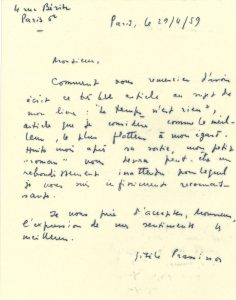 4 rue Bérite
Paris 6e
Paris, le 29/4/59
Monsieur,
Comment vous remercier d'avoir
écrit ce très bel article au sujet de
mon livre : "le temps n'est rien",
article que je considère comme le meil-
leur, le plus flatteur à mon égard.
Huit mois après sa sortie, mon petit
"roman" vous devra peut-être un
rebondissement inattendu pour lequel
je vous suis infiniment reconnais-
sante.
Je vous prie d'accepter, Monsieur,
l'expression de mes sentiments les
meilleurs.
Gisèle Prassinos